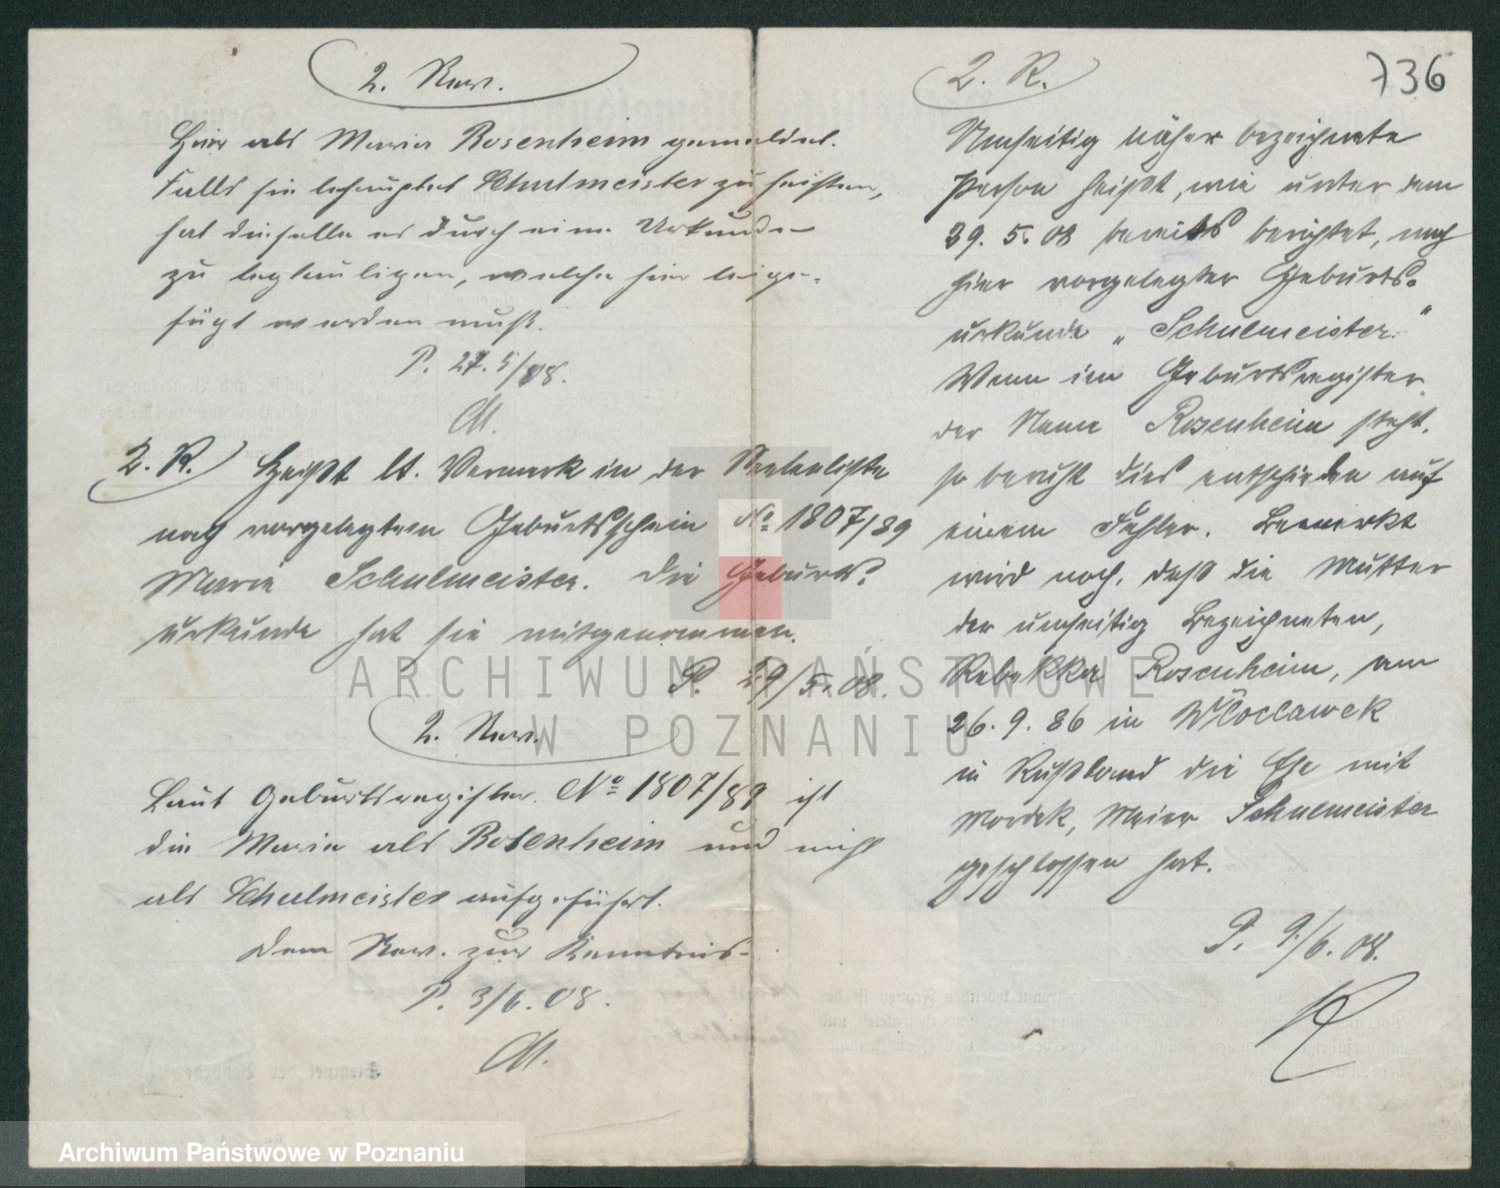 2. Rev.
Hier als Maria Rosenheim gemeldet.
Falls sie behauptet Schulmeister zu heißen,
hat dieselbe es durch eine Urkunde
zu beglaubigen, welche hier beige-
fügt werden muß.
P. 27.5/08.
M.
2. R. Heißt lt. Vermerk in der Meldeliste
nach vorgelegtem Geburtsschein No 1807/89
Maria Schulmeister. Die Geburts-
urkunde hat sie mitgenommen.
P. 29/5.08.
2. Rev.
Laut Geburtsregister No 1807/89 ist
die Maria als Rosenheim und nicht
als Schulmeister aufgeführt.
Dem Rev. zur Kenntnis.
P. 3/6.08.
M.
736
2. R.
Umseitig näher bezeichnete
Person heißt, wie unter dem
29. 5. 08 bereits berichtet, nach
hier vorgelegter Geburts-
urkunde „Schulmeister."
Wenn im Geburtsregister
der Name Rosenheim steht,
so beruht dies entschieden auf
einem Fehler. Bemerkt
wird noch, daß die Mutter
der umseitig Bezeichneten,
Rebekka Rosenheim, am
26. 9. 86 in Włocławek
in Rußland die Ehe mit
Mordek, Meier Schulmeister
geschlossen hat.
P. 9/6.08.
ARCHIWUM PAŃSTWOWE
W POZNANIU
Archiwum Państwowe w Poznaniu